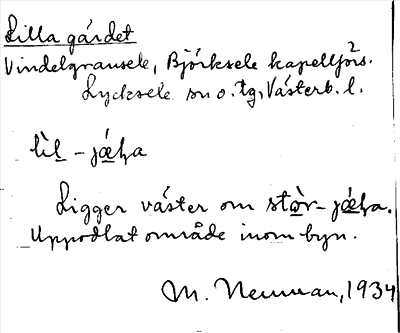 Lilla gärdet
Vindelgransele, Björksele kapellförs.
Lycksele sn o. tg, Västerb. l.
lìl - jæ̀ḷa
Ligger väster om stὼr- jæ̀ḷa.
Uppodlat område inom byn.
M. Neuman, 1934